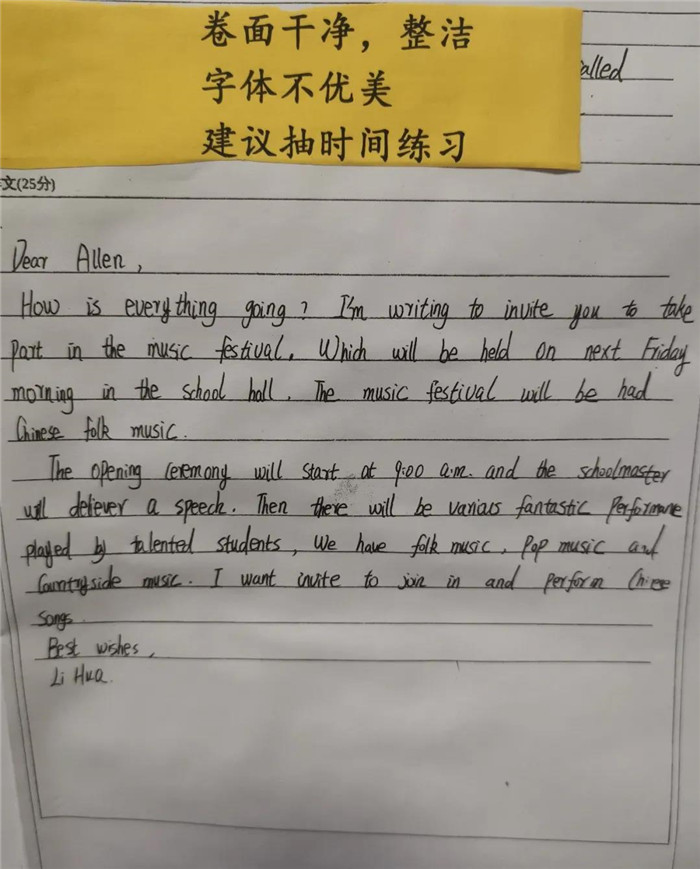 卷面干净，整洁
字体不优美
建议抽时间练习
alled
文(25分)
Dear Allen,
How is everything going? I'm writing to invite you to take
part in the music festival. Which will be held on next Friday
morning in the school hall. The music festival will be had
Chinese folk music.
The opening ceremony will start at 9:00 a.m. and the schoolmaster
will deliever a speech. Then there will be various fantastic performane
played by talented students, We have folk music, Pop music and
Countryside music. I want invite to join in and perform Chinese
songs.
Best wishes,
Li Hua.